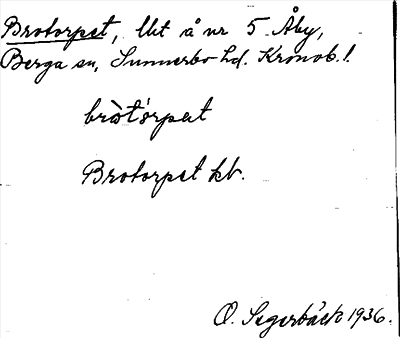 Brotorpet, lht å nr 5 Åby,
Berga sn, Sunnerbo hd. Kronob. l.
bròtórpet
Brotorpet kt.
O. Segerbäck 1936.